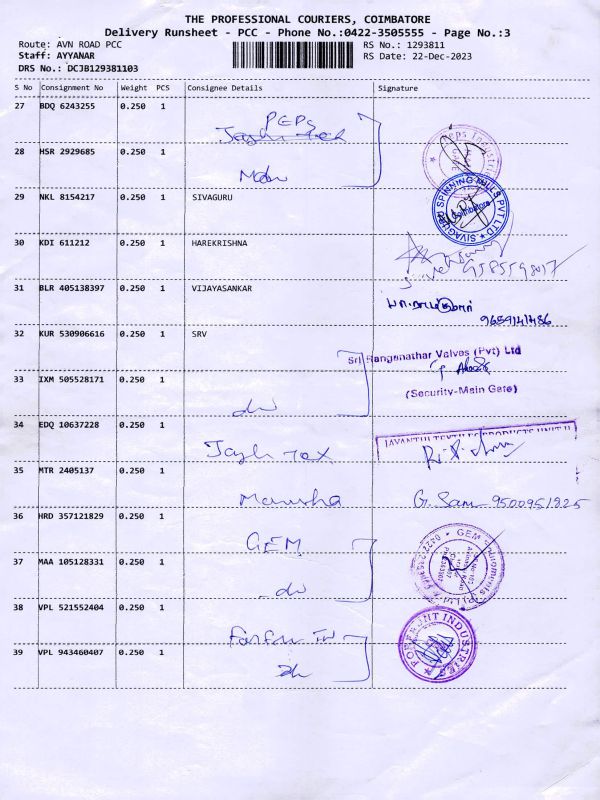 THE PROFESSIONAL COURIERS, COIMBATORE
Delivery Runsheet - PCC - Phone No.:0422-3505555 - Page No.:3
Route: AVN ROAD PCC
RS No.: 1293811
Staff: AYYANAR
RS Date: 22-Dec-2023
DRS No.: DCJB129381103
S No Consignment No Weight PCS Consignee Details Signature
27 BDQ 6243255 0.250 1 PEPs
28 HSR 2929685 0.250 1
29 NKL 8154217 0.250 1 SIVAGURU
SPINNING MILLS PVT LTD
Coimbatore
30 KDI 611212 0.250 1 HAREKRISHNA
31 BLR 405138397 0.250 1 VIJAYASANKAR
9659141486
32 KUR 530906616 0.250 1 SRV
Sri Ranganathar Valves (Pvt) Ltd
33 IXM 505528171 0.250 1 do
(Security-Main Gate)
34 EDQ 10637228 0.250 1
JAYANTHI TEXTILE PRODUCTS UNIT II
Jayh Tex
35 MTR 2405137 0.250 1 Manisha G. Sam 9500951825
36 HRD 357121829 0.250 1 GEM
37 MAA 105128331 0.250 1 do
38 VPL 521552404 0.250 1
FOREFRONT INDUSTRIES
39 VPL 943460407 0.250 1 do